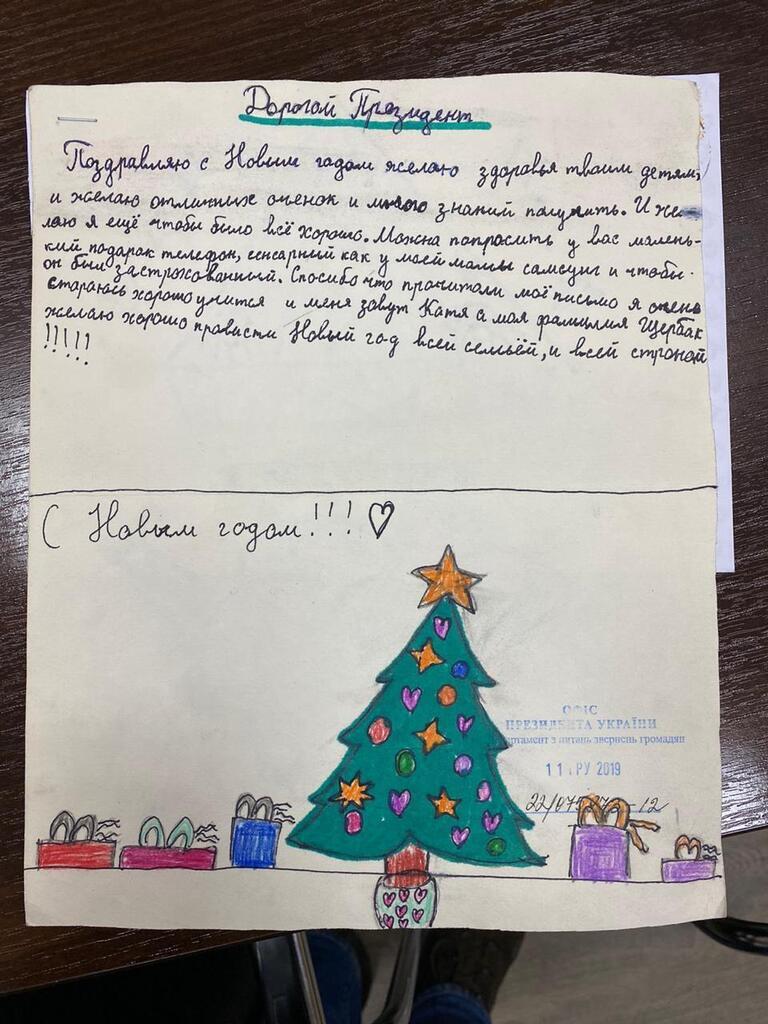 Дорогой Президент
Поздравляю с Новым годом желаю здоровья твоим детям,
и желаю отличных оченок и много знаний палучить. И же-
лаю я ещё чтобы было всё хорошо. Можна папросить у вас малень-
кий подарак телефон, сенсарный как у моей мамы самсунг и чтобы
он был застрохованный. Спосибо что прочитали моё письмо я очень
стараюсь хорошо учится и меня завут Катя а моя фамилия Щербак
желаю хорошо прависти Новый год всей семьёй, и всей строной
!!!!!
С Новым годом!!! ♡
ОФІС
ПРЕЗИДЕНТА УКРАЇНИ
артамент з питань звернень громадян
11 ГРУ 2019